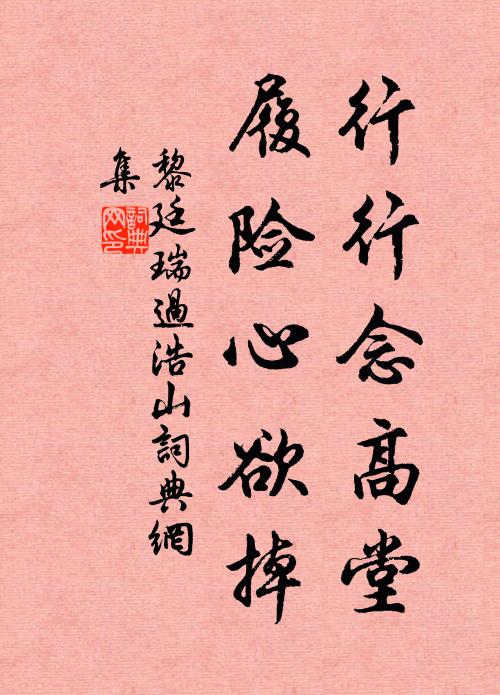 行行念高堂
履险心欲掉
黎廷瑞過浩山詞典網
集
詞典网印